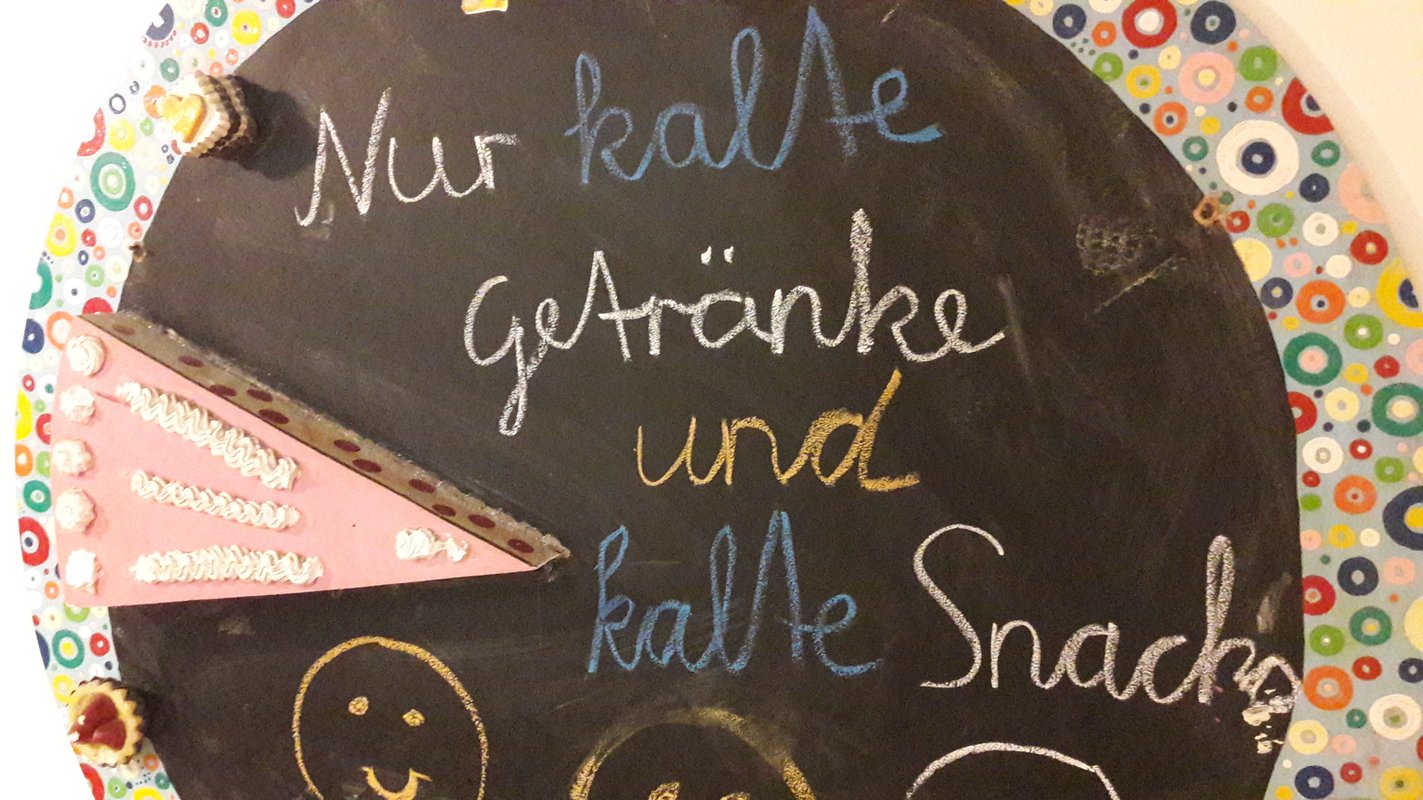 Nur kalte
Getränke
und
kalte Snacks